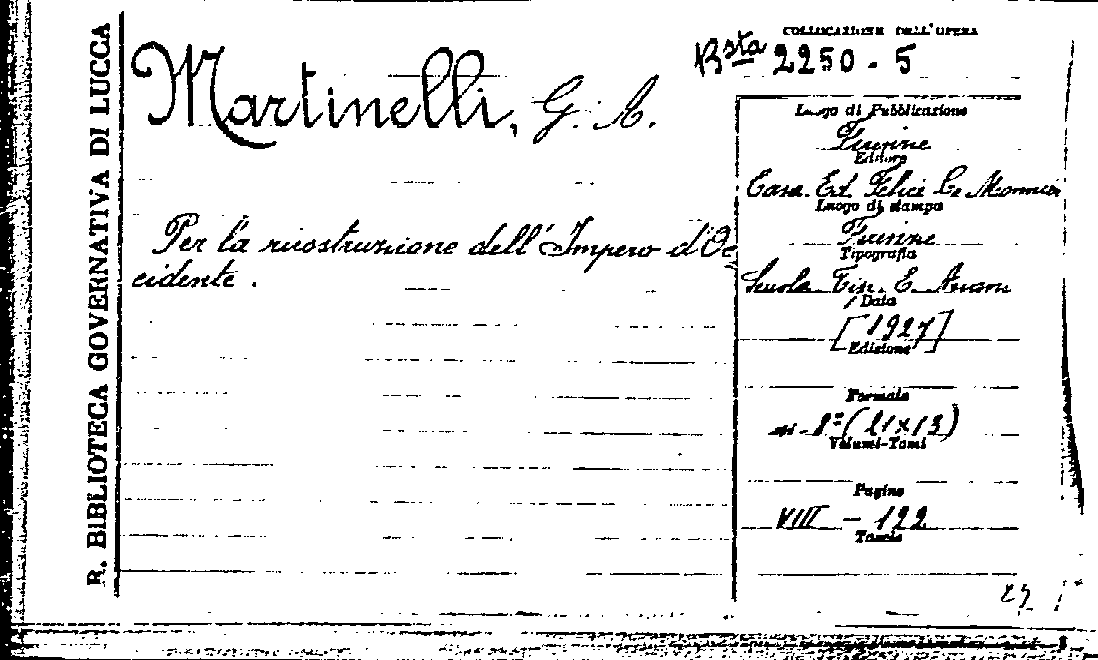 R. BIBLIOTECA GOVERNATIVA DI LUCCA
Martinelli, G. A.
Per la ricostruzione dell'Impero d'Oc
cidente.
COLLOCAZIONE DELL'OPERA
Bsta 2250 - 5
Luogo di Pubblicazione
Firenze
Editore
Casa. Ed. Felice Le Monnier
Luogo di stampa
Firenze
Tipografia
Scuola Tip. E.
Data
[1927]
Edizione
Formato
in-8º (21x13)
Volumi-Tomi
Pagine
VIII - 122
Tavole